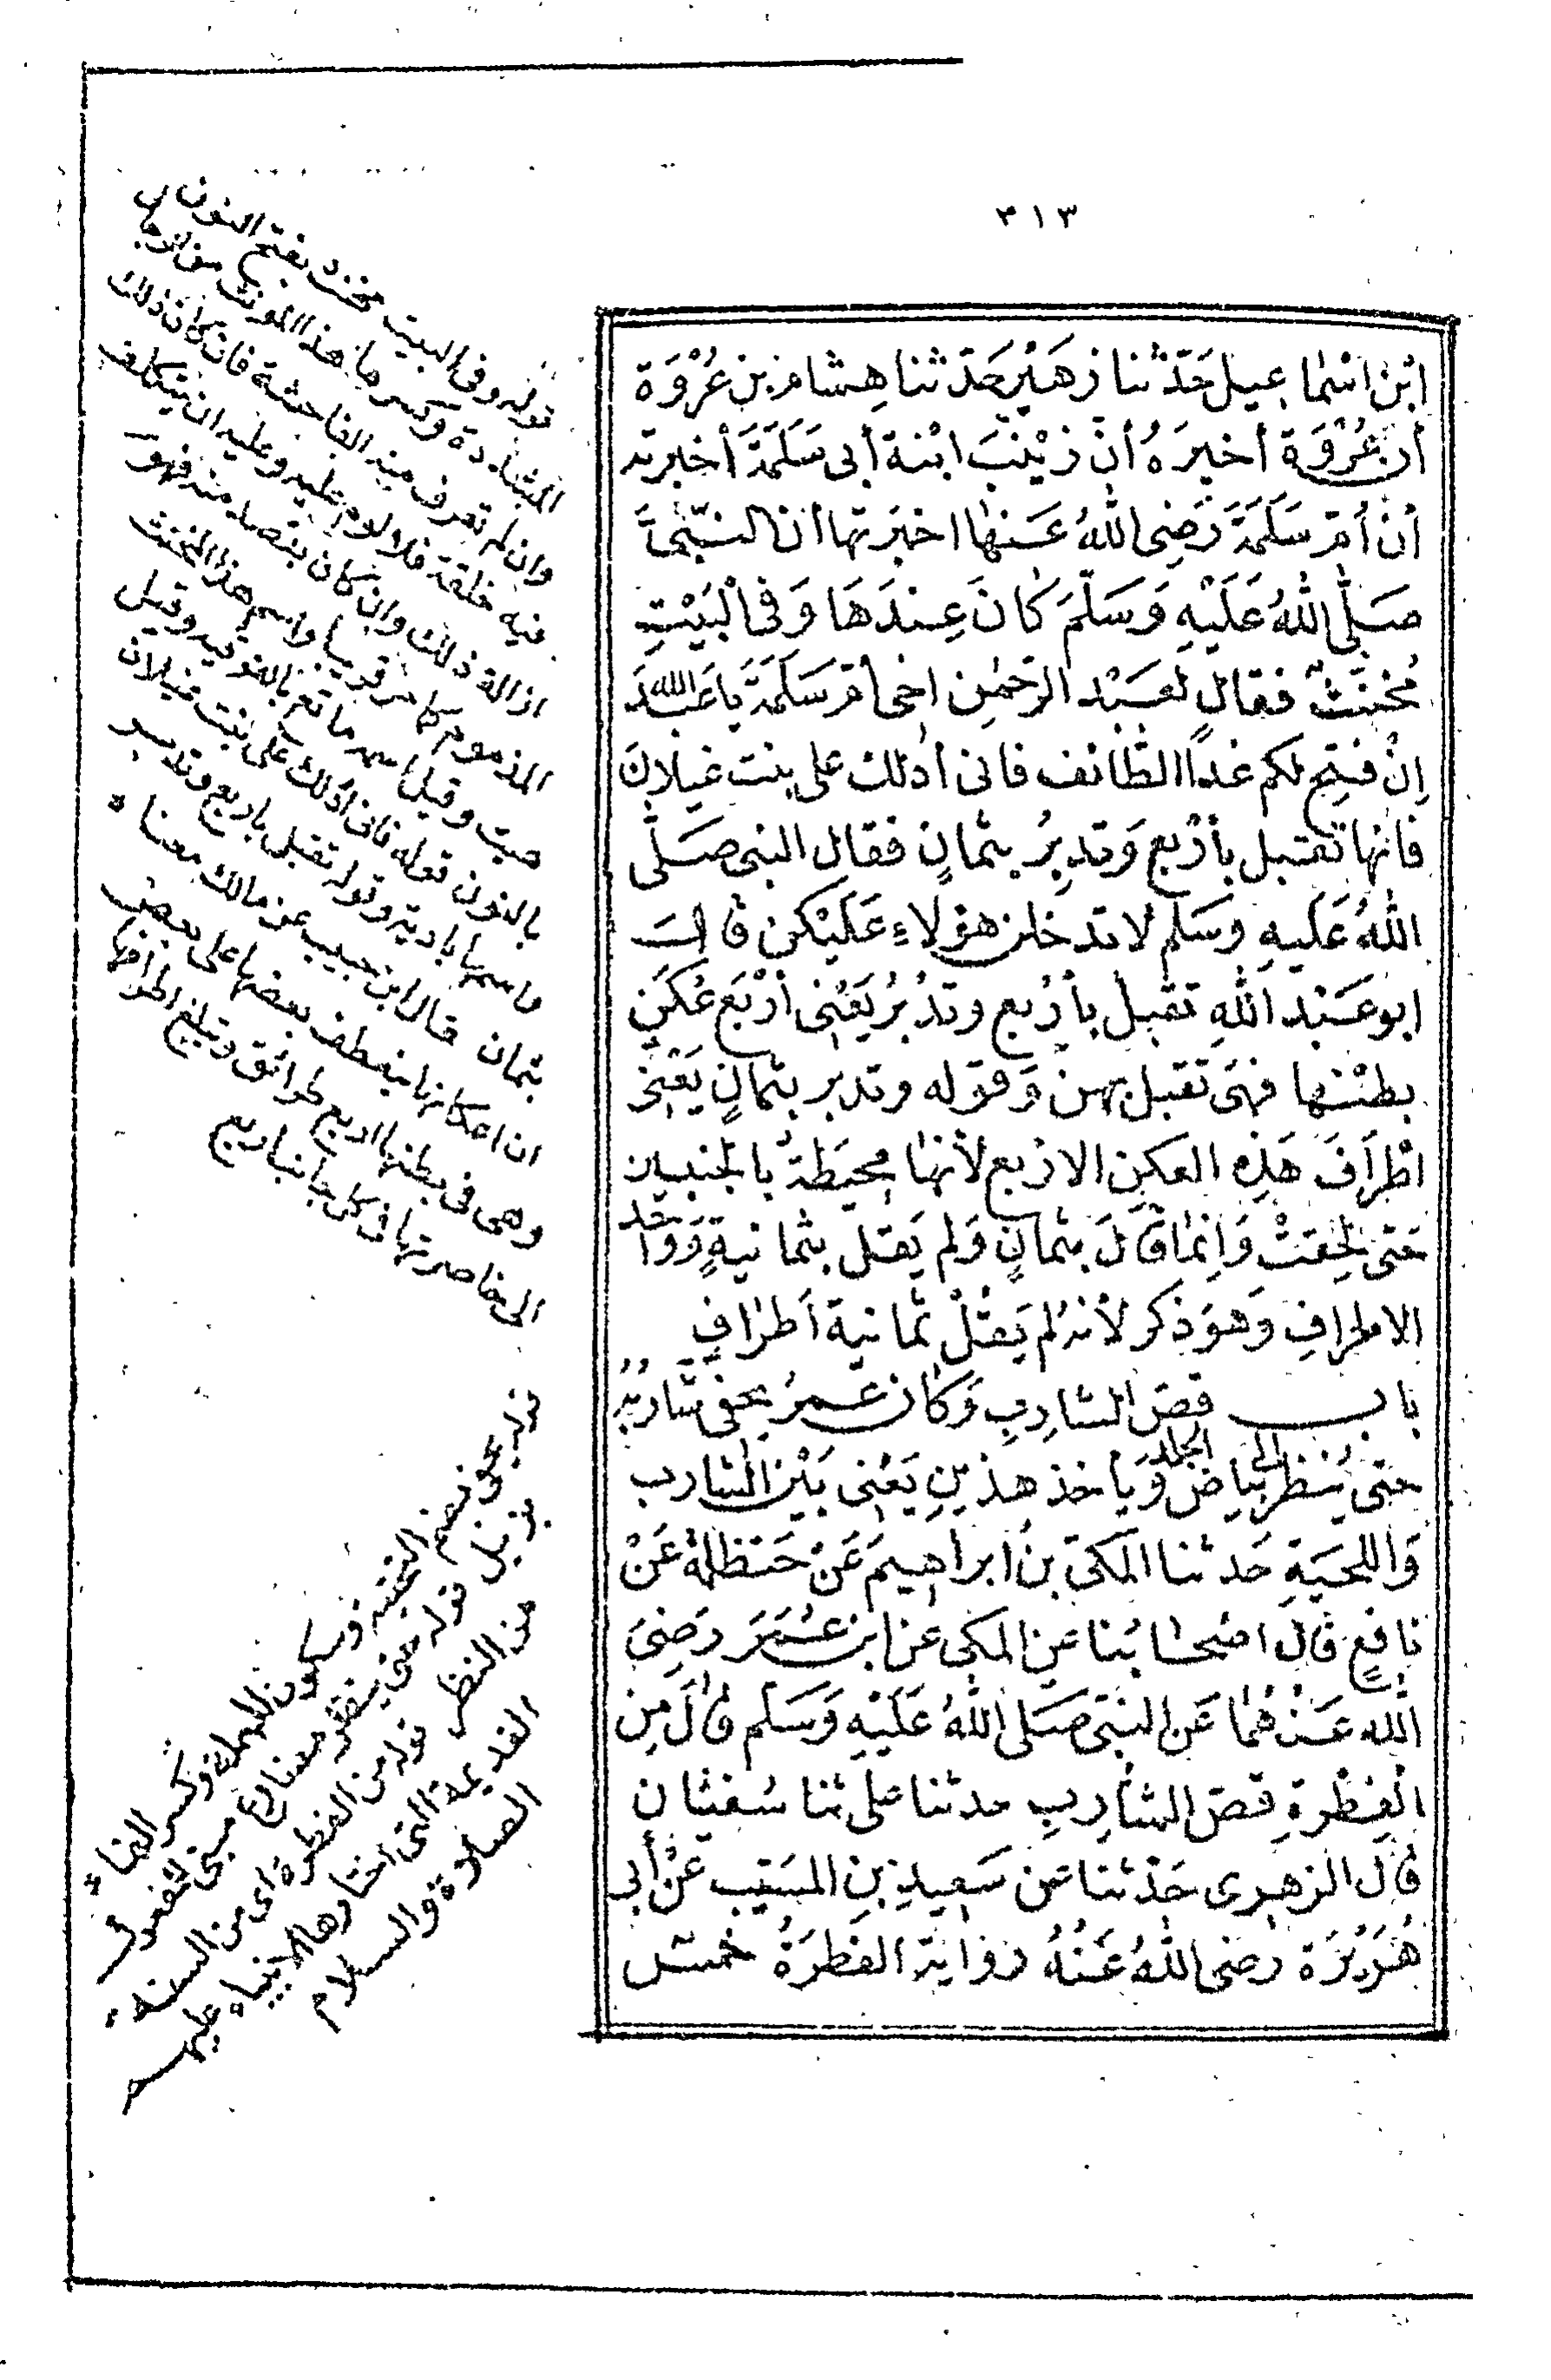 ٣١٣
ابْن اسْمٰاعيل حَدّثنا زهَيْر حَدّثنا هِشام بن عُرْوَة
أن عُرْوَة أخبرَهُ أنّ زَيْنَبَ ابْنة أبى سَلَمَةَ أخبرته
أنّ أمّ سَلَمَةَ رَضِى اللهُ عَنهٰا اخبَرتها أنّ النّبىَّ
صَلّى اللهُ عَلَيْهِ وَسَلّمَ كانَ عِندَهَا وَفى البَيْتِ
مُخنّثٌ فقال لعَبْد الرّحمٰن اخى أمّ سَلَمَةَ يا عَبْدَ الله
إنْ فتِح لكم غدًا الطّائف فانى أدلّك على بنت غيلانَ
فانها تقبل بأرْبع وَتدبِرُ بثمانٍ فقال النبى صَلّى
اللهُ عَلَيهِ وسَلم لا تدخلن هؤلاءِ عَلَيْكن قال
ابو عَبْد اللهِ تقبل بأرْبع وتدْبُر يَعْنى أرْبَع عُكَنِ
بطنها فهىَ تقبل بهنّ وَقوله وتدبر بثمانٍ يَعْنى
اطْرَافَ هَذِهِ العكن الاربع لأنهٰا محيطة بالجنبين
حَتى لحِقتْ وَإنمٰا قالَ بثمانٍ وَلم يَقل بثمانيةٍ وَوٰاحد
الاطرافِ وَهوَ ذكر لأنه لم يَقلْ ثمانية أطرٰافٍ
باب قصّ الشارِبِ وَكان عمرُ يحفى شاربَه
حتى يُنظر إلى بيَاض الجلد وَيأخذ هذينِ يَعْنى بَيْن الشارب
وَاللحيَةِ حَدثنا المكى بن ابراهِيمَ عَنْ حَنظلة عَنْ
نافعٍ قال اصْحابُنا عَنِ المكى عَن ابن عُمَرَ رضِىَ
الله عَنْهُمٰا عَن النبّى صَلى اللهُ عَلَيْهِ وَسَلم قالَ مِن
الفِطرةِ قصّ الشارِبِ حدثنا على ثنا سُفيٰان
قال الزهرى حَدّثنا عَن سَعِيدِ بنِ المسَيّب عَنْ أبى
هُرَيْرَة رضى اللهُ عَنْهُ روٰاية الفطرَةُ خمسٌ
قوله وفى البيت مخنث بفتح النون
المشددة وكسرها هذا المؤنث من الرجال
وان لم تعرف منه الفاحشة فان كان ذلك
فيه خلقة فلا لوم عليه وعليه ان يتكلف
ازالة ذلك وان كان بقصد منه فهو
المذموم كما مر قريبا واسم هذا المخنث
هيت وقيل اسمه ماتع بالفوقيه وقيل
بالنون قوله فانى أدلك على بنت غيلان
واسمها بادية وقوله تقبل باربع وتدبر
بثمان قال ابن حبيب عن مالك معناه
ان اعكانها ينعطف بعضها على بعض
وهى فى بطنها اربع طرائق وتبلغ اطرافها
الى خاصرتها فى كل جانب اربع
قوله يحفى بضم التحتيه وسكون المهملة وكسر الفاء
يزيل قوله حتى ينظر مضارع مبنى للمفعول
من النظر قوله من الفطرة اى من السنة
القديمة التى اختارها الانبياء عليهم
الصلاة والسلام